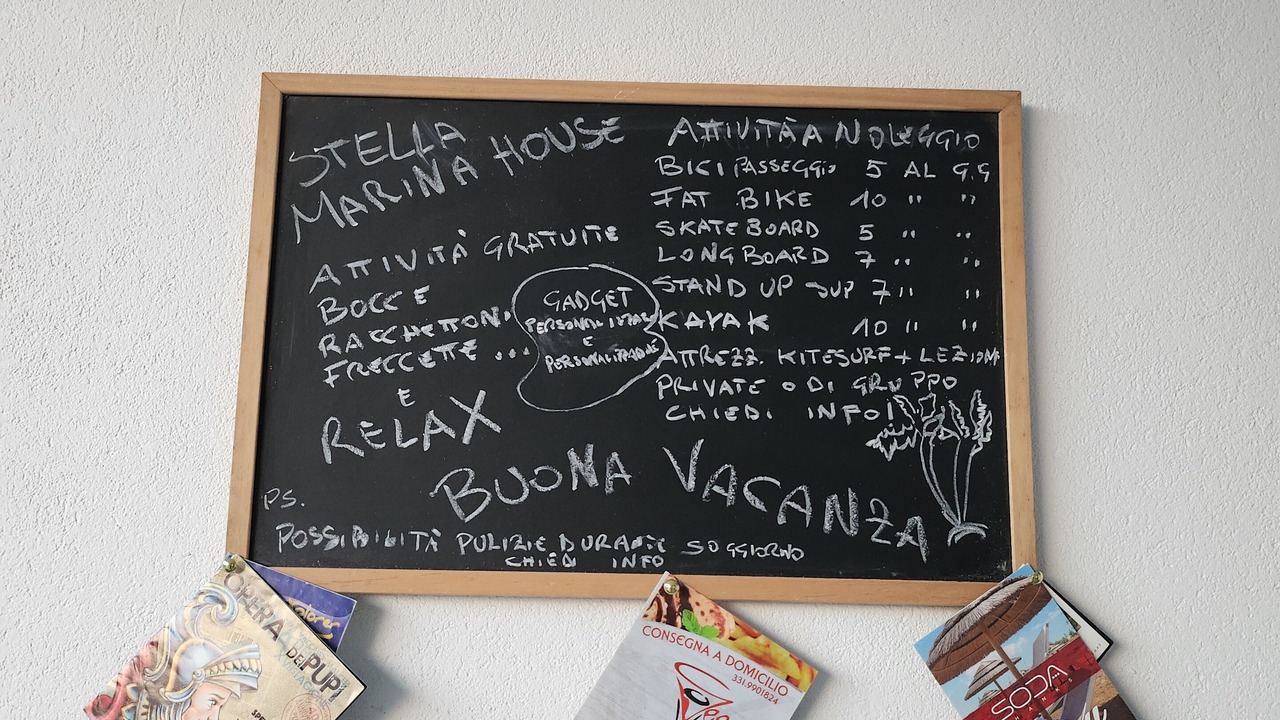 STELLA
MARINA HOUSE
ATTIVITÀ GRATUITE
BOCCE
RACCHETTONI
FRECCETTE ...
E
RELAX
GADGET
PERSONALIZZATI
E
ATTIVITÀ A NOLEGGIO
BICI PASSEGGIO 5 AL G.G
FAT BIKE 10 " "
SKATEBOARD 5 " "
LONGBOARD 7 " "
STAND UP SUP 7 " "
KAYAK 10 " "
ATTREZZ. KITESURF + LEZIONI
PRIVATE O DI GRUPPO
CHIEDI INFO!
BUONA VACANZA
PS.
POSSIBILITÀ PULIZIE DURANTE SOGGIORNO
CHIEDI INFO
OPERA
DEI PUPI
CONSEGNA A DOMICILIO
331.9901824
SODA